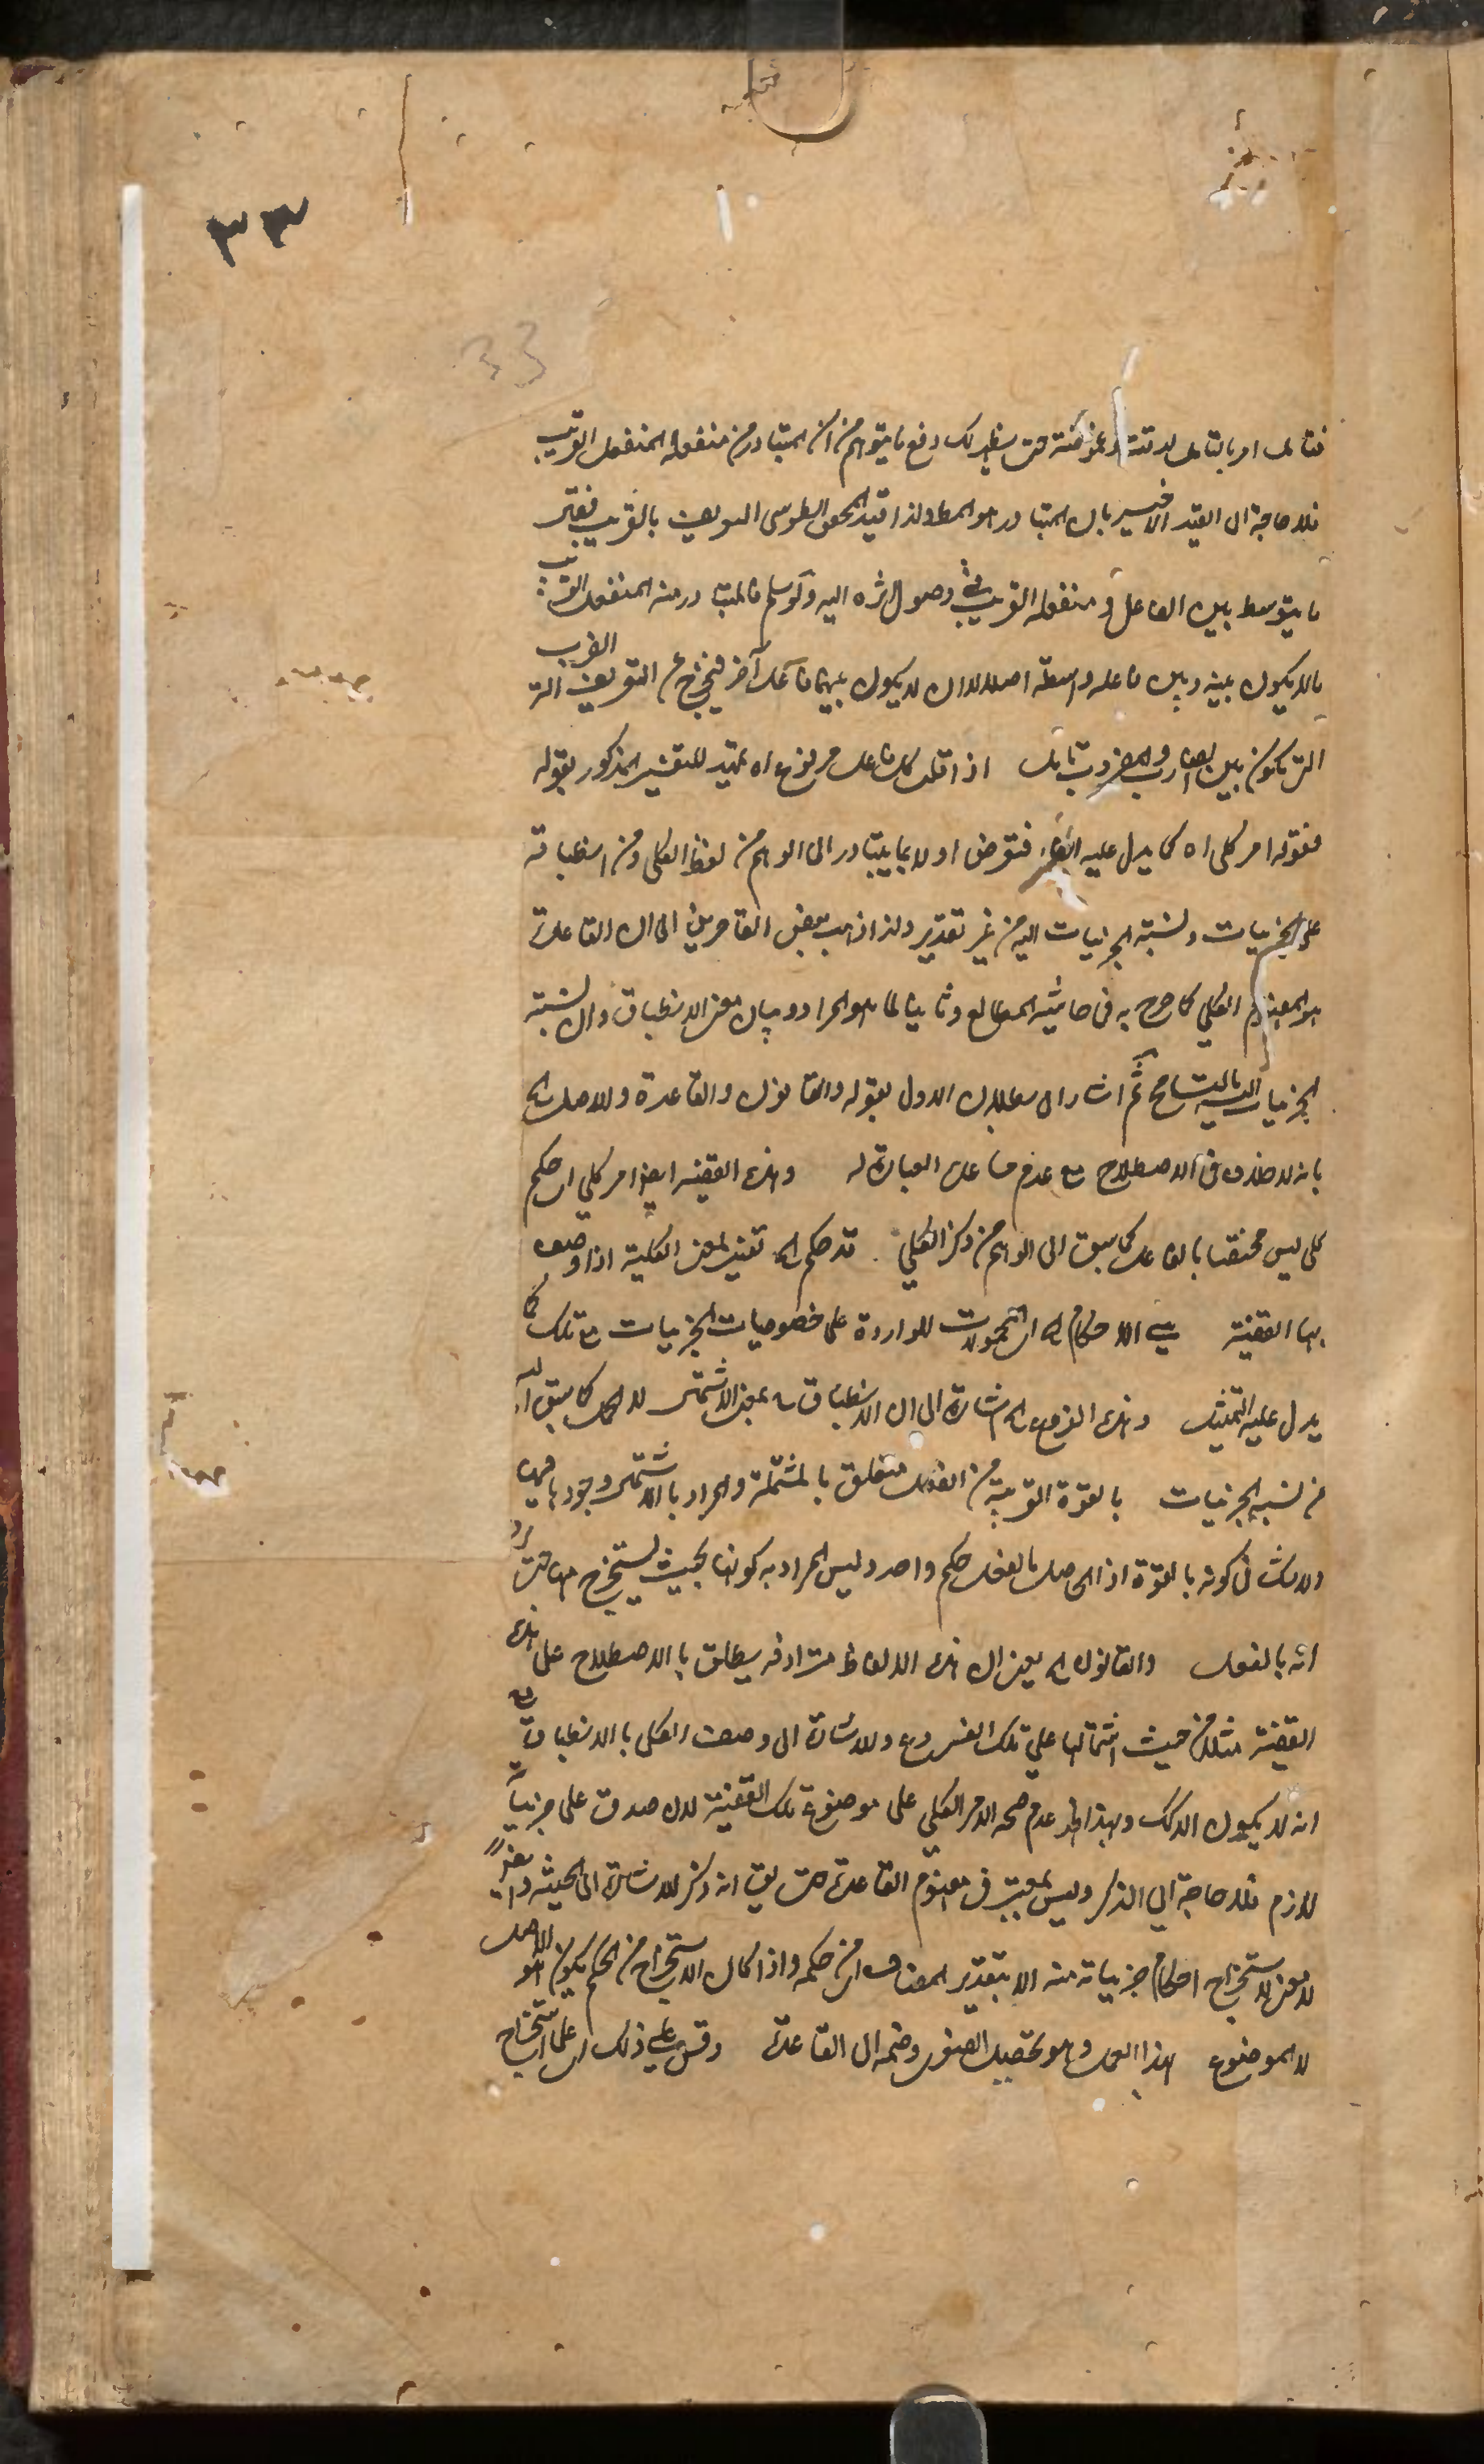 ٣٣
33
فتأمل امر بالتأمل لدقته وغموضته حتى يظهر لك دفع ما يتوهم من ان المتبادر من منفعله المنفعل القريب
فلا حاجة الى القيد الاخير بان المتبادر هو المط ولذا قيد المحقق الطوسى التعريف بالقريب فقال
ما يتوسط بين الفاعل ومنفعله القريب في وصول اثره اليه ولو سلم فالمتبادر منه المنفعل القريب
ما لا يكون بينه وبين فاعله واسطة اصلا لا ان لا يكون بينهما فاعل آخر فيخرج عن التعريف
التى تكون بين الضارب والمضروب تأمل اذا قلت كل فاعل مرفوع اه تمهيد للتفسير المذكور بقوله
فقوله امر كلى اه كما يدل عليه الفاء فتعرض اولا بما يتبادر الى الوهم من لفظ الكلى ومن انطباقه
على الجزئيات ونسبة الجزئيات اليه من غير تقدير ولذا ذهب بعض القاصرين الى ان القاعدة
هو المفهوم الكلي كما صرح به فى حاشية المطالع وثانيا لما هو المراد وبيان معنى الانطباق وان نسبة
الجزئيات اليه بالتسامح ثم اشار الى بطلان الاول بقوله والقانون والقاعدة والاصل الخ
بانه لا خلاف فى الاصطلاح مع عدم مساعدة العبارة له وهذه القضية ايضا امر كلي اى حكم
كلى ليس مختصا بالفاعل كما سبق الى الوهم من ذكر الكلي قد حكم الخ تفسير لمعنى الكلية اذا وصف
بها القضية هي الاحكام الخ اى المحمولات الواردة على خصوصيات الجزئيات مع تلك كما
يدل عليه التمثيل وهذه الفروع الخ اشارة الى ان الانطباق بمعنى الاشتمال لا الحمل كما سبق اليه
من نسبة الجزئيات بالقوة القريبة من الفعل متعلق بالمشتملة والمراد بالاشتمال وجودها فيه
ولا شك فى كونه بالقوة اذ الحاصل بالفعل حكم واحد وليس المراد به كونها بحيث يستخرج منها حتى يرد
انه بالفعل والقانون الخ يعنى ان هذه الالفاظ مترادفة يطلق بالاصطلاح على هذه
القضية مثلا من حيث اشتمالها على تلك الفروع وللاشارة الى وصف الكلى بالانطباق مع
انه لا يكون الا كك وبهذا ظهر عدم صحة الامر الكلي على موضوع تلك القضية لان صدقه على جزئياته
لازم فلا حاجة الي الذكر وليس بمعتبر فى مفهوم القاعدة حتى يق انه ذكر للاشارة الى الحيثية وايضا
لا معنى لاستخراج احكام جزئياته منه الا بتقدير المضاف اى من حكمه واذا كان الاستخراج من الحكم يكون هو الاصل
لا الموضوع هذا العمل وهو تحصيل الصغرى وضمه الى القاعدة وقس علي ذلك اى على استخراج